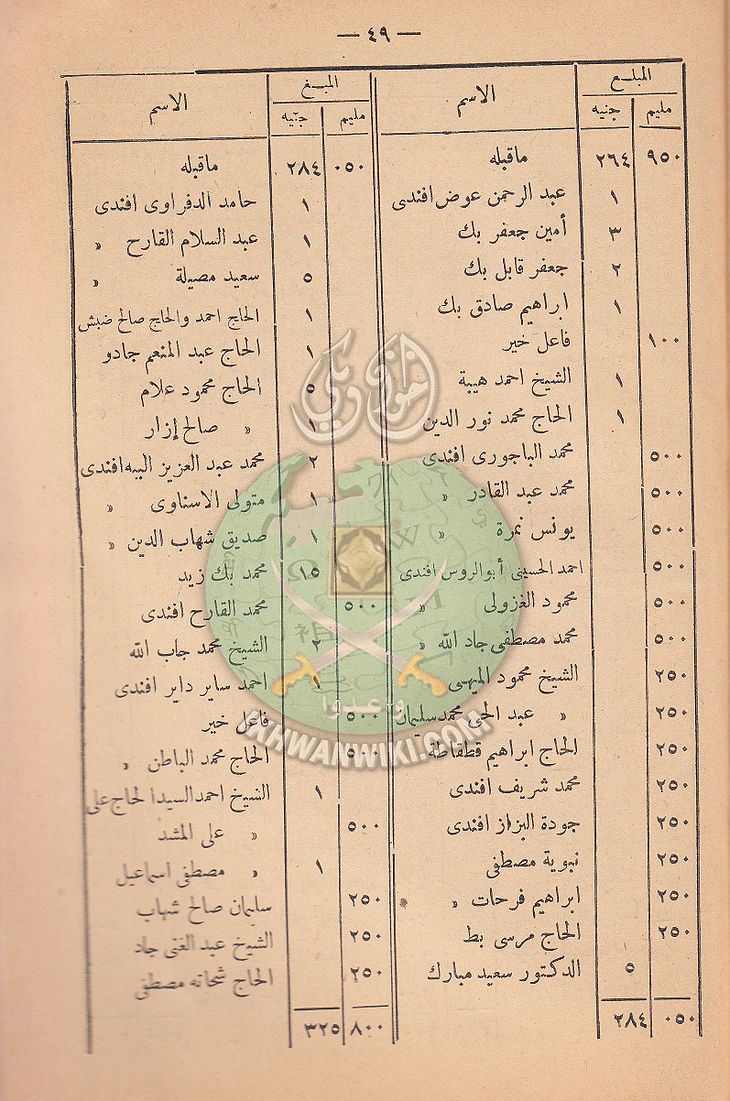 — ٤٩ —
المبلغ الاسم
مليم جنيه
٩٥٠ ٢٦٤ ماقبله
١ عبد الرحمن عوض افندى
٣ أمين جعفر بك
٢ جعفر قابل بك
١ ابراهيم صادق بك
١٠٠ فاعل خير
١ الشيخ احمد هيبة
١ الحاج محمد نور الدين
٥٠٠ محمد الباجورى افندى
٥٠٠ محمد عبد القادر »
٥٠٠ يونس نمرة »
٥٠٠ احمد الحسينى أبو الروس افندى
٥٠٠ محمود الغزولى »
٥٠٠ محمد مصطفى جاد الله »
٢٥٠ الشيخ محمود الميهى
٢٥٠ » عبد الحى محمد سليمان
٢٥٠ الحاج ابراهيم قطقاطة
٢٥٠ محمد شريف افندى
٢٥٠ جودة البزاز افندى
٢٥٠ نبوية مصطفى
٢٥٠ ابراهيم فرحات »
٢٥٠ الحاج مرسى بط
٥ الدكتور سعيد مبارك
٠٥٠ ٢٨٤
المبلغ الاسم
مليم جنيه
٠٥٠ ٢٨٤ ماقبله
١ حامد الدفراوى افندى
١ عبد السلام القارح »
٥ سعيد مصيلة »
١ الحاج احمد والحاج صالح ضبش
١ الحاج عبد المنعم جادو
٥ الحاج محمود علام
١ » صالح إزار
٢ محمد عبد العزيز الببه افندى
١ متولى الاسناوى »
١ صديق شهاب الدين »
١٥ محمد بك زيد
٥٠٠ محمد القارح افندى
٢ الشيخ محمد جاب الله
١ احمد ساير داير افندى
٥٠٠ فاعل خير
٥٠٠ الحاج محمد الباطن »
١ الشيخ احمد السيد الحاج على
٥٠٠ » على المشد
١ » مصطفى اسماعيل
٢٥٠ سليمان صالح شهاب
٢٥٠ الشيخ عبد الغنى جاد
٢٥٠ الحاج شحاته مصطفى
٨٠٠ ٣٢٥
إخوان ويكي
وأعدوا
IKHWANWIKI.COM